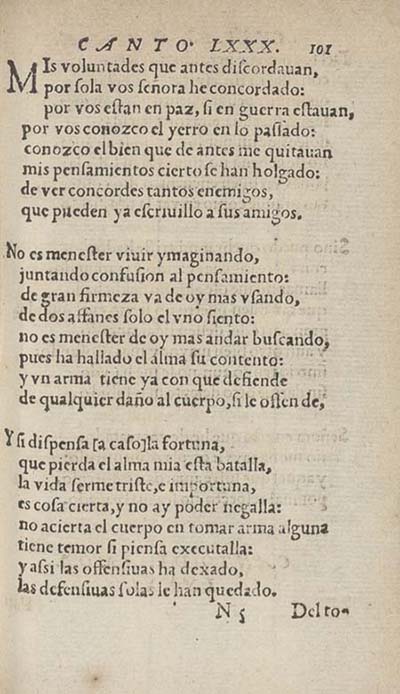 CANTO LXXX. 101
MIs voluntades que antes discordauan,
por sola vos señora he concordado:
por vos estan en paz, si en guerra estauan,
por vos conozco el yerro en lo passado:
conozco el bien que de antes me quitauan
mis pensamientos cierto se han holgado:
de ver concordes tantos enemigos,
que pueden ya escriuillo a sus amigos.
No es menester viuir ymaginando,
juntando confusion al pensamiento:
de gran firmeza va de oy mas vsando,
de dos affanes solo el vno siento:
no es menester de oy mas andar buscando,
pues ha hallado el alma su contento:
y vn arma tiene ya con que defiende
de qualquier daño al cuerpo, si le offende,
Y si dispensa [a caso] la fortuna,
que pierda el alma mia esta batalla,
la vida serme triste, e importuna,
es cosa cierta, y no ay poder negalla:
no acierta el cuerpo en tomar arma alguna
tiene temor si piensa executalla:
y assi las offensiuas ha dexado,
las defensiuas solas le han quedado.
N 5 Del to-